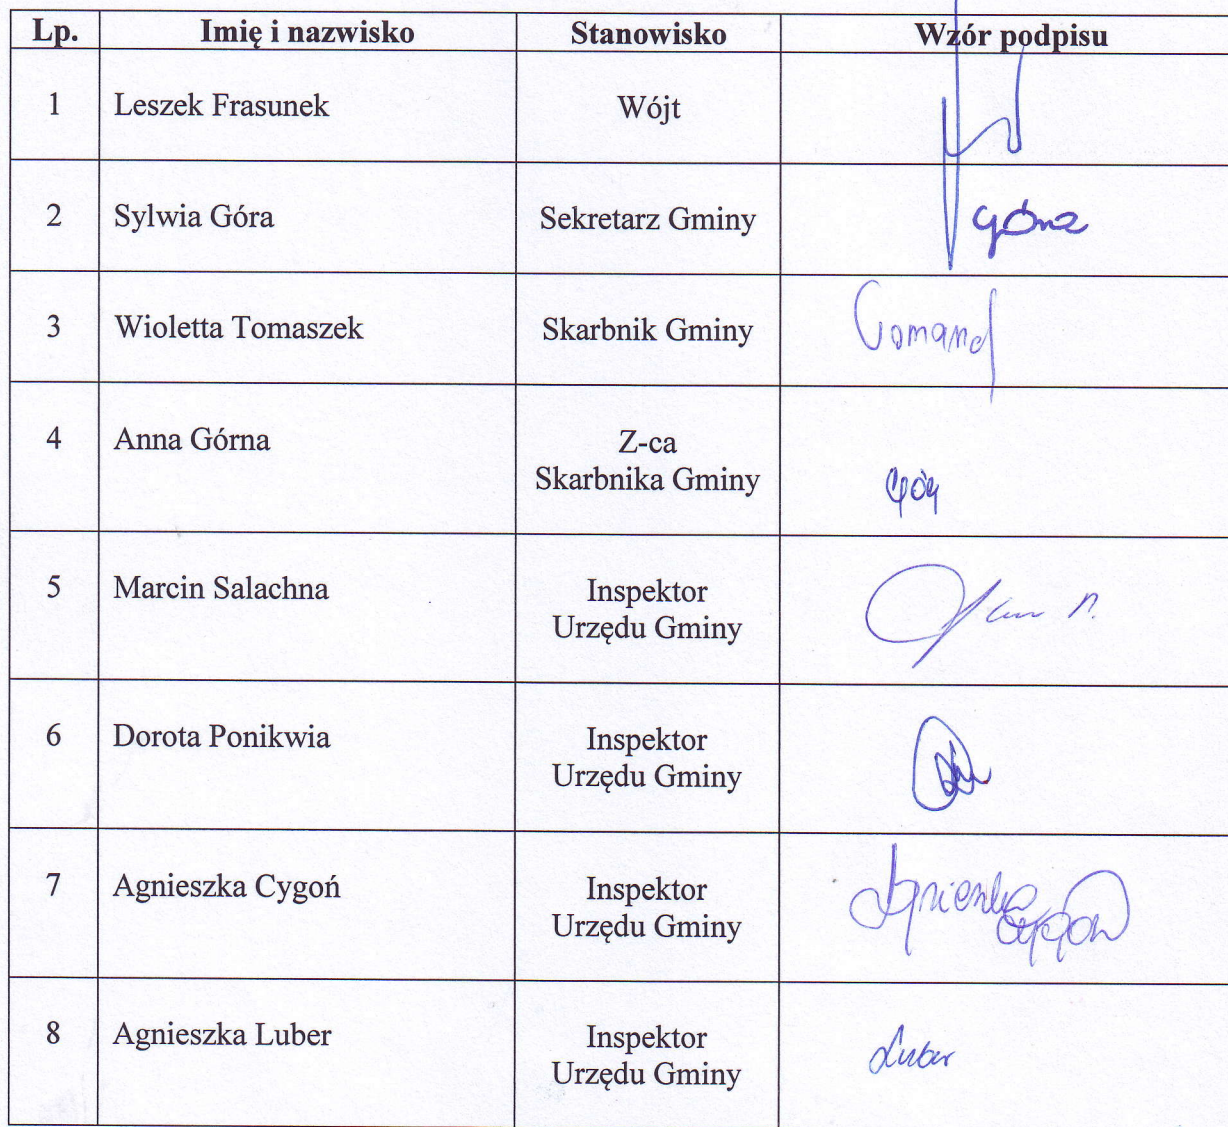 Lp. Imię i nazwisko Stanowisko Wzór podpisu
1 Leszek Frasunek Wójt
2 Sylwia Góra Sekretarz Gminy Góra
3 Wioletta Tomaszek Skarbnik Gminy
4 Anna Górna Z-ca
Skarbnika Gminy
5 Marcin Salachna Inspektor
Urzędu Gminy
6 Dorota Ponikwia Inspektor
Urzędu Gminy
7 Agnieszka Cygoń Inspektor Agnieszka
Urzędu Gminy Cygoń
8 Agnieszka Luber Inspektor Luber
Urzędu Gminy